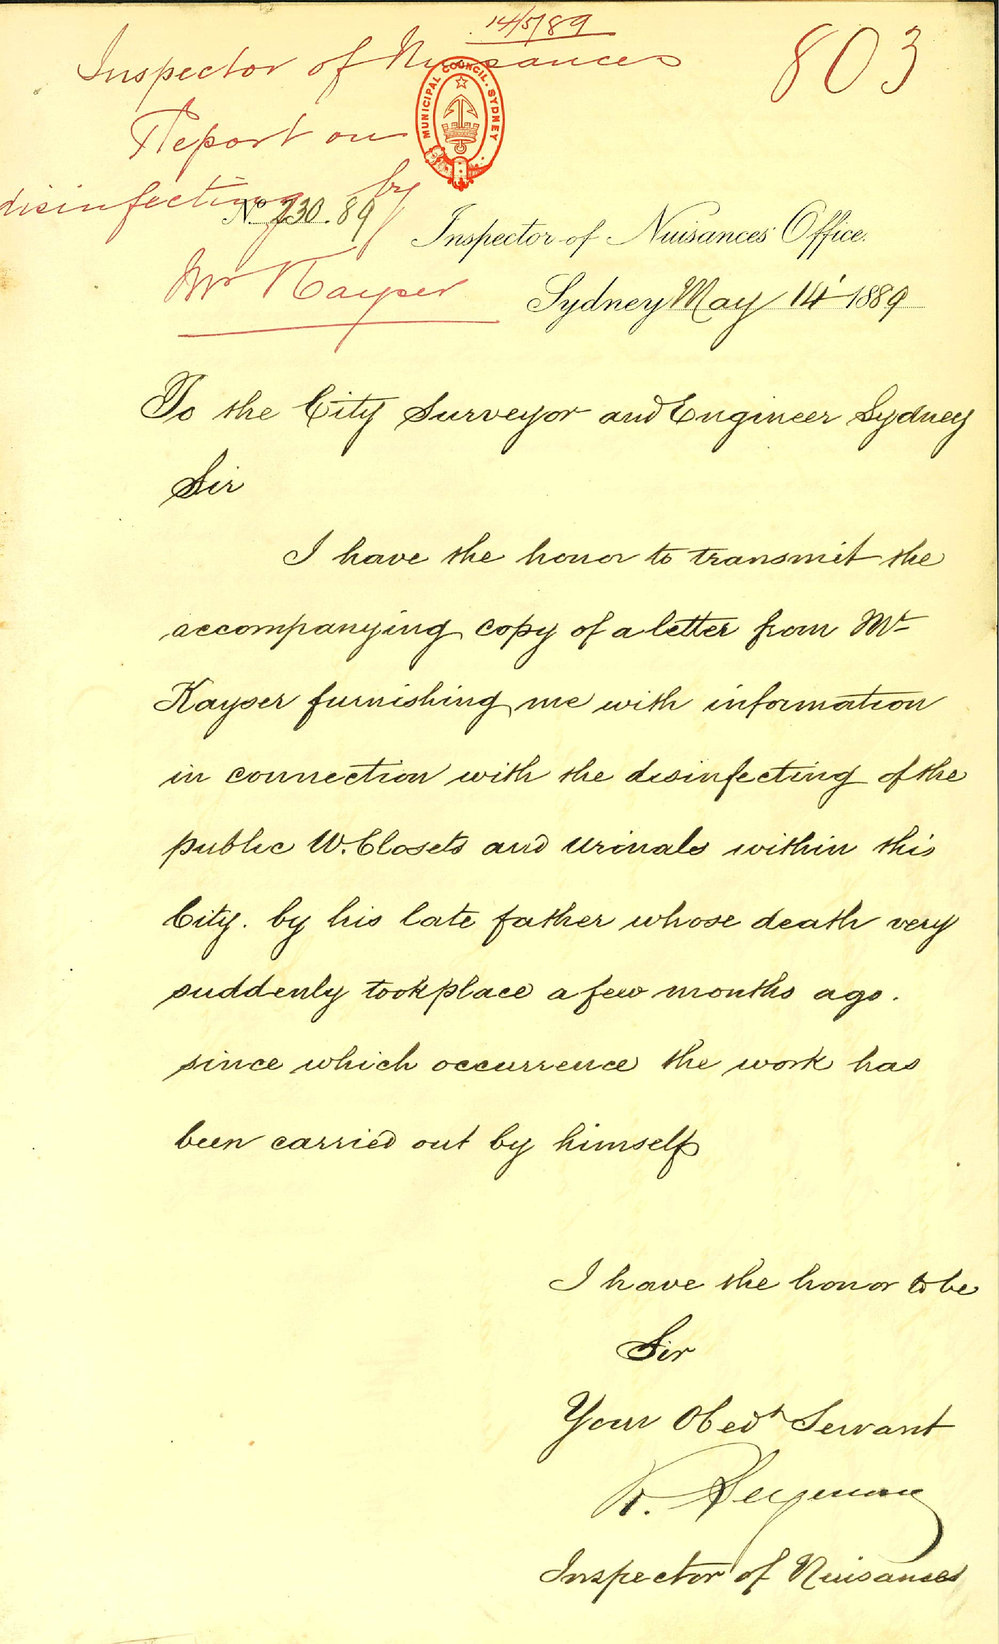 14/5/89
Inspector of Nuisances
803
Report on
disinfecting by
Mr Kayser
MUNICIPAL COUNCIL. SYDNEY
No 230.89
Inspector of Nuisances' Office.
Sydney May 14' 1889
To the City Surveyor and Engineer Sydney
Sir
I have the honor to transmit the
accompanying copy of a letter from Mr
Kayser furnishing me with information
in connection with the disinfecting of the
public W. Closets and Urinals within this
City. by his late father whose death very
suddenly took place a few months ago.
since which occurrence the work has
been carried out by himself
I have the honor to be
Sir
Your Obedt Servant
R. Seymour
Inspector of Nuisances